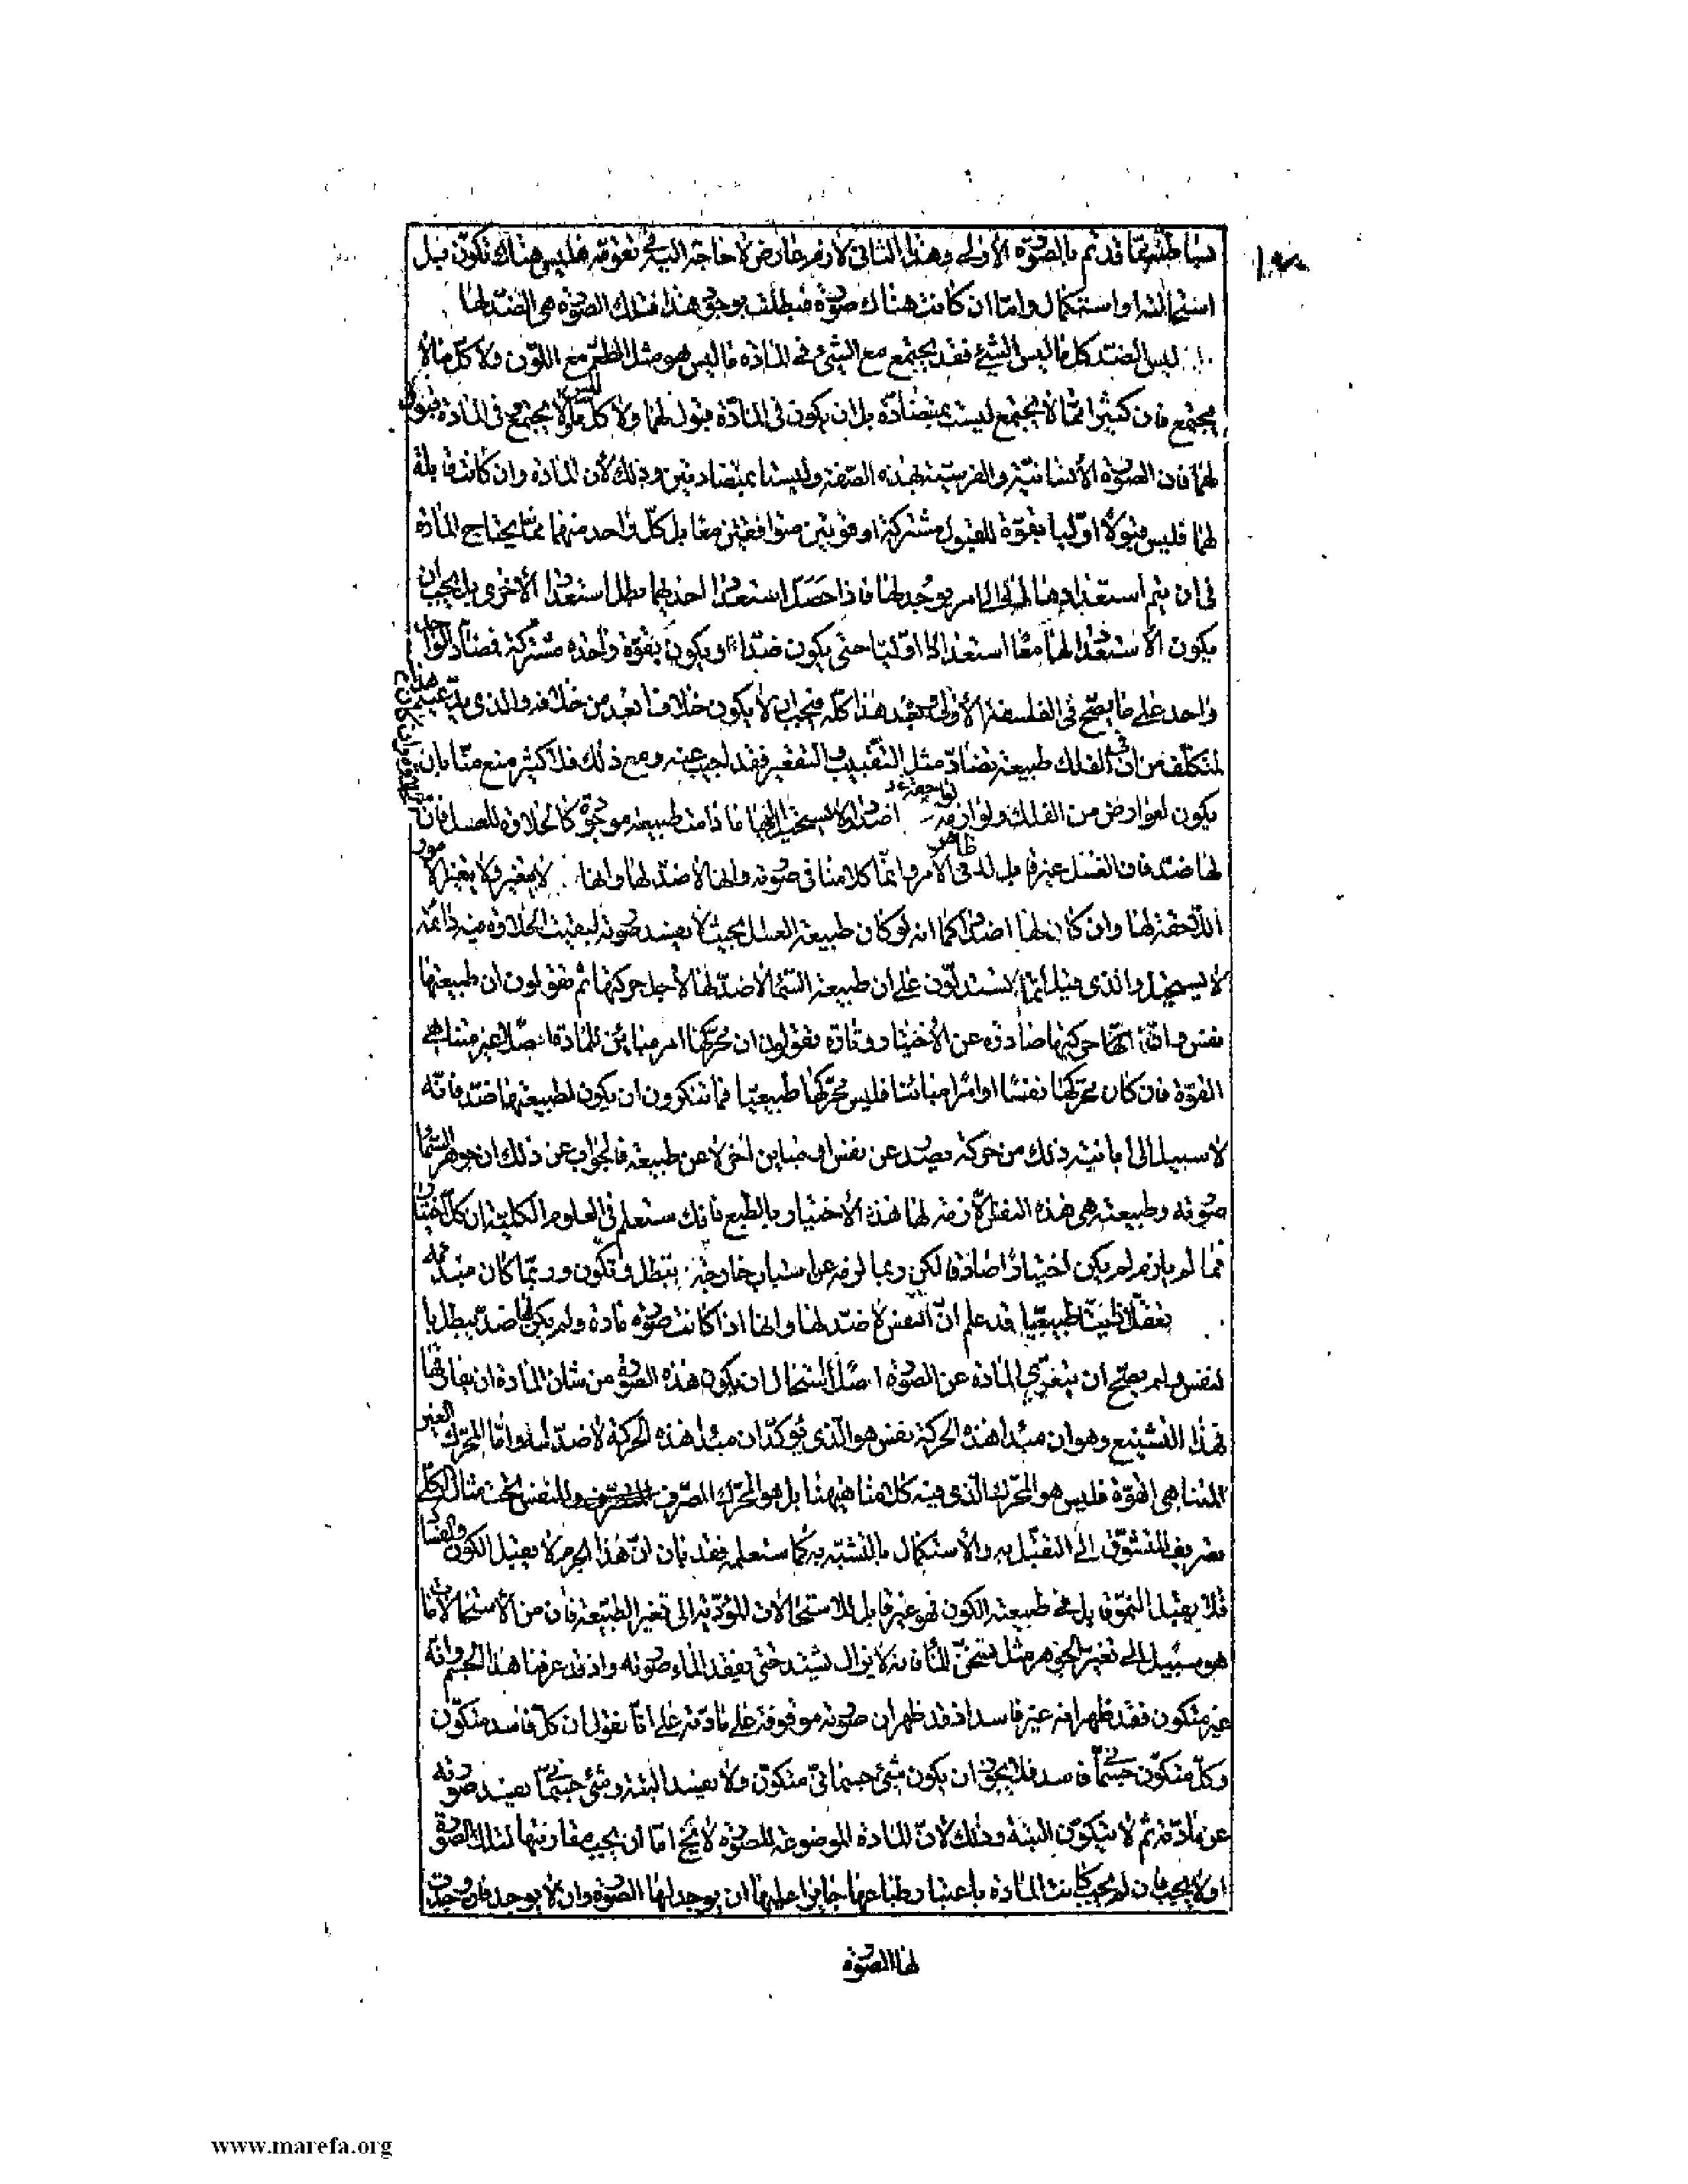 قد تم بالصورة الأولى وهذا الثانى لازم عارض لا حاجة اليه فى تقومه فليس هناك تكون قبل
استحالة او استكمال واما ان كانت هناك صورة فبطلت بوجود هذا فتلك الصورة هى الضد لها
ليس الضد كل ما ليس الشئ فقد يجتمع مع الشئ فى المادة ما ليس هو مثل الطعم مع اللون ولا كل ما لا
يجتمع فان كثيرا مما لا يجتمع ليست بمتضادة بل ان يكون فى المادة قبول لهما ولا كل ما لا يجتمع فى المادة
لهما فان الصورة الأنسانية والفرسية بهذه الصفة وليستا بمتضادتين وذلك لأن المادة وان كانت قابلة
لهما فليس قبولا اوليا بقوة للقبول مشتركة او قوتين متوافقتين معا بل كل واحد منهما مما يحتاج المادة
فى ان يتم استعدادها الى امر يوجد لها فاذا حصل استعداد احدهما بطل استعداد الأخرى بل يجب ان
يكون الأستعداد لهما معا استعدادا اوليا حتى يكون ضدا ويكون بقوة واحدة مشتركة فضاد الواحد
واحد على ما يصح فى الفلسفة الأولى وبعد هذا كله فيجب ان لا يكون خلاف ابعد من خلافه والذى
المتكلف من ان فى الفلك طبيعة تضاد مثل التقبيب والتقعير فقد اجيب عنه ومع ذلك فلا كثير منع منا بان
يكون لعوارض من الفلك ولوازمه اضداد لا يستحيل اليها ما دامت طبيعته موجودة كالحلاوة للعسل فان
لها ضد فان العسل غير قابل له فى ظاهر الأمر وانما كلامنا فى صورته وانها لا ضد لها وانها لا يتغير ولا يتغير الأمور
اللاحقة لها وان كان لها اضداد كما انه لو كان طبيعة العسل بحيث لا يفسد صورته لبقيت الحلاوة فيه دائمة
لا يستحيل والذى قيل انما يستدلون على ان طبيعة السماء لا ضد لها لأجل حركتها ثم تقولون ان طبيعتها
نفس وان حركتها صادرة عن الأختيار وتارة تقولون ان محركها امر مباين للمادة اصلا غير متناهى
القوة فان كان محركها نفسا او امرا مباينا فليس محركها طبيعيا فما تنكرون ان يكون لطبيعتها ضد فانه
لا سبيل الى ابانة ذلك من حركة تصدر عن نفس او مباين اخر لا عن طبيعة فالجواب عن ذلك ان جوهر السماء
صورته وطبيعته هى هذه النفس لازمة لها هذه الأختيار بالطبع فانك ستعلم فى العلوم الكلية ان كل اختيار
فما لم يلزم لم يكن اختيارا صادقا لكن ربما لزمه عن اسباب خارجة يتبطل وتكون وربما كان مبدئه
قد علم ان النفس لا ضد لها وانها اذا كانت صورة مادة ولم يكن لها ضد يبطل بها
لنفس ولم يصلح ان يتعرى المادة عن الصورة اصلا استحال ان يكون هذه الصورة من شان المادة ان يفارقها
فهذا التشنيع وهو ان مبدا هذه الحركة نفس هو الذى يؤكد ان مبدا هذه الحركة لا ضد له واما المحرك الغير
المتناهى القوة فليس هو المحرك الذى فيه كلامنا هيهنا بل هو المحرك
المتشوق الى التقبل به والأستكمال بالتشبه به كما ستعلمه فقد بان ان هذا الجرم لا يقبل الكون والفساد
فلا يقبل النمو فان فى طبيعة الكون فهو غير قابل للاستحالات المؤدية الى تغير الطبيعة فان من الأستحالات ما
هو سبيل الى تغير الجوهر مثل تسخن الماء فانه لا يزال يشتد حتى يفقد الماء صورته واذ قد عرفنا هذا الجسم وانه
غير متكون فقد ظهر انه غير فاسد اذ قد ظهر ان صورته موقوفة على مادته على انا نقول ان كل فاسد متكون
وكل متكون جسمانى فاسد فلا يجوز ان يكون شئ جسمانى متكون ولا يفسد البتة وشئ جسمانى يفسد صورته
عن مادته ثم لا يتكون البتة وذلك لأن المادة الموضوعة للصورة لا يخ اما ان يجب مقارنتها لتلك الصورة
او لا يجب فان لم يجب كانت المادة باعتبار طباعها جايزا عليها ان يوجد لها الصورة وان لا يوجد فان وجدت
لها الصورة
www.marefa.org